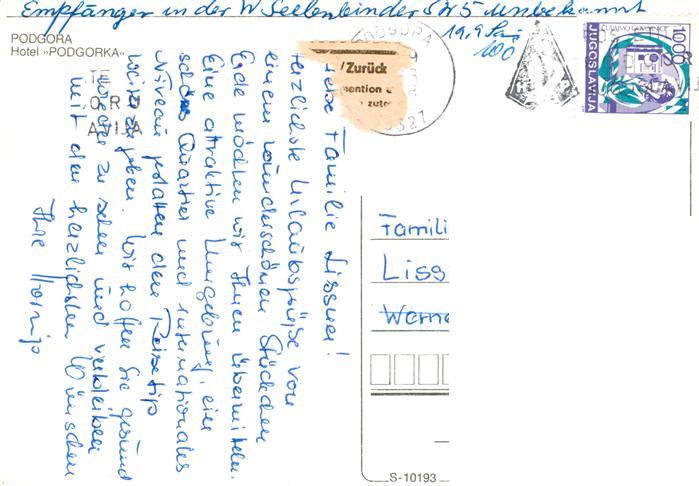 Empfänger in der W. Seelenbinder Str 5 unbekannt
19.9
100
PODGORA
Hotel »PODGORKA«
PODGORA
Zurück
1000
JUGOSLAVIJA
Liebe Familie Lissner!
Herzlichste Urlaubsgrüße von
einem wunderschönen Stückchen
Erde möchten wir Ihnen übermitteln.
Eine attraktive Umgebung, ein
schönes Quartier und internationales
Niveau gestatten den Reisetip
weiterzugeben. Wir hoffen Sie gesund
wieder zu sehen und verbleiben
mit den herzlichsten Wünschen
Ihre
Famili
Liss
Werne
S-10193